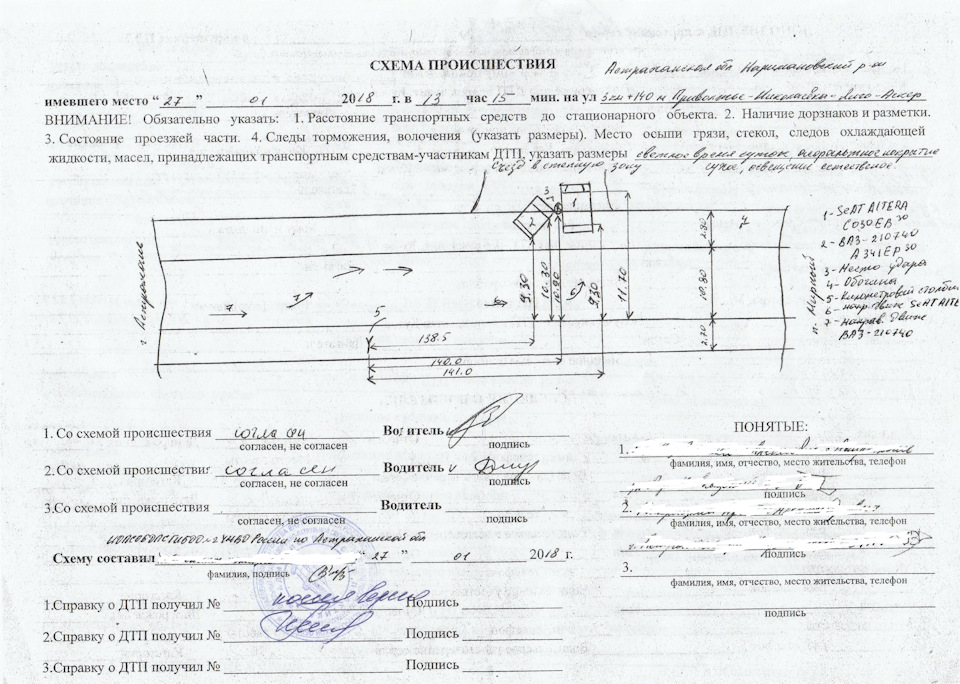 СХЕМА ПРОИСШЕСТВИЯ
Астраханская обл Наримановский р-он
имевшего место “ 27 ” 01 2018 г. в 13 час 15 мин. на ул 3 км + 140 м
ВНИМАНИЕ! Обязательно указать: 1. Расстояние транспортных средств до стационарного объекта. 2. Наличие дорзнаков и разметки.
3. Состояние проезжей части. 4. Следы торможения, волочения (указать размеры). Место осыпи грязи, стекол, следов охлаждающей
жидкости, масел, принадлежащих транспортным средствам-участникам ДТП, указать размеры светлое время суток, покрытие
сухое, освещение естественное.
Съезд в степную зону
г. Астрахань
3
2
1
7
5
6
7
9.30
10.30
10.90
9.30
11.70
2.80
10.80
2.70
138.5
140.0
141.0
1 - SEAT ALTERA
С030ЕВ 30
2 - ВАЗ-210740
А341ЕР 30
3 - Место удара
4 - Обочина
5 - Километровый столбик
6 - напр. движ. SEAT ALTE
7 - Направ. движ.
ВАЗ-210740
1. Со схемой происшествия согласен Водитель
согласен, не согласен подпись
2. Со схемой происшествия согласен Водитель
согласен, не согласен подпись
3.Со схемой происшествия Водитель
согласен, не согласен подпись
России по Астраханской обл
Схему составил “ 27 ” 01 2018 г.
фамилия, подпись
1.Справку о ДТП получил № Подпись
2.Справку о ДТП получил № Подпись
3.Справку о ДТП получил № Подпись
ПОНЯТЫЕ:
1.
фамилия, имя, отчество, место жительства, телефон
подпись
2.
фамилия, имя, отчество, место жительства, телефон
подпись
3.
фамилия, имя, отчество, место жительства, телефон
подпись